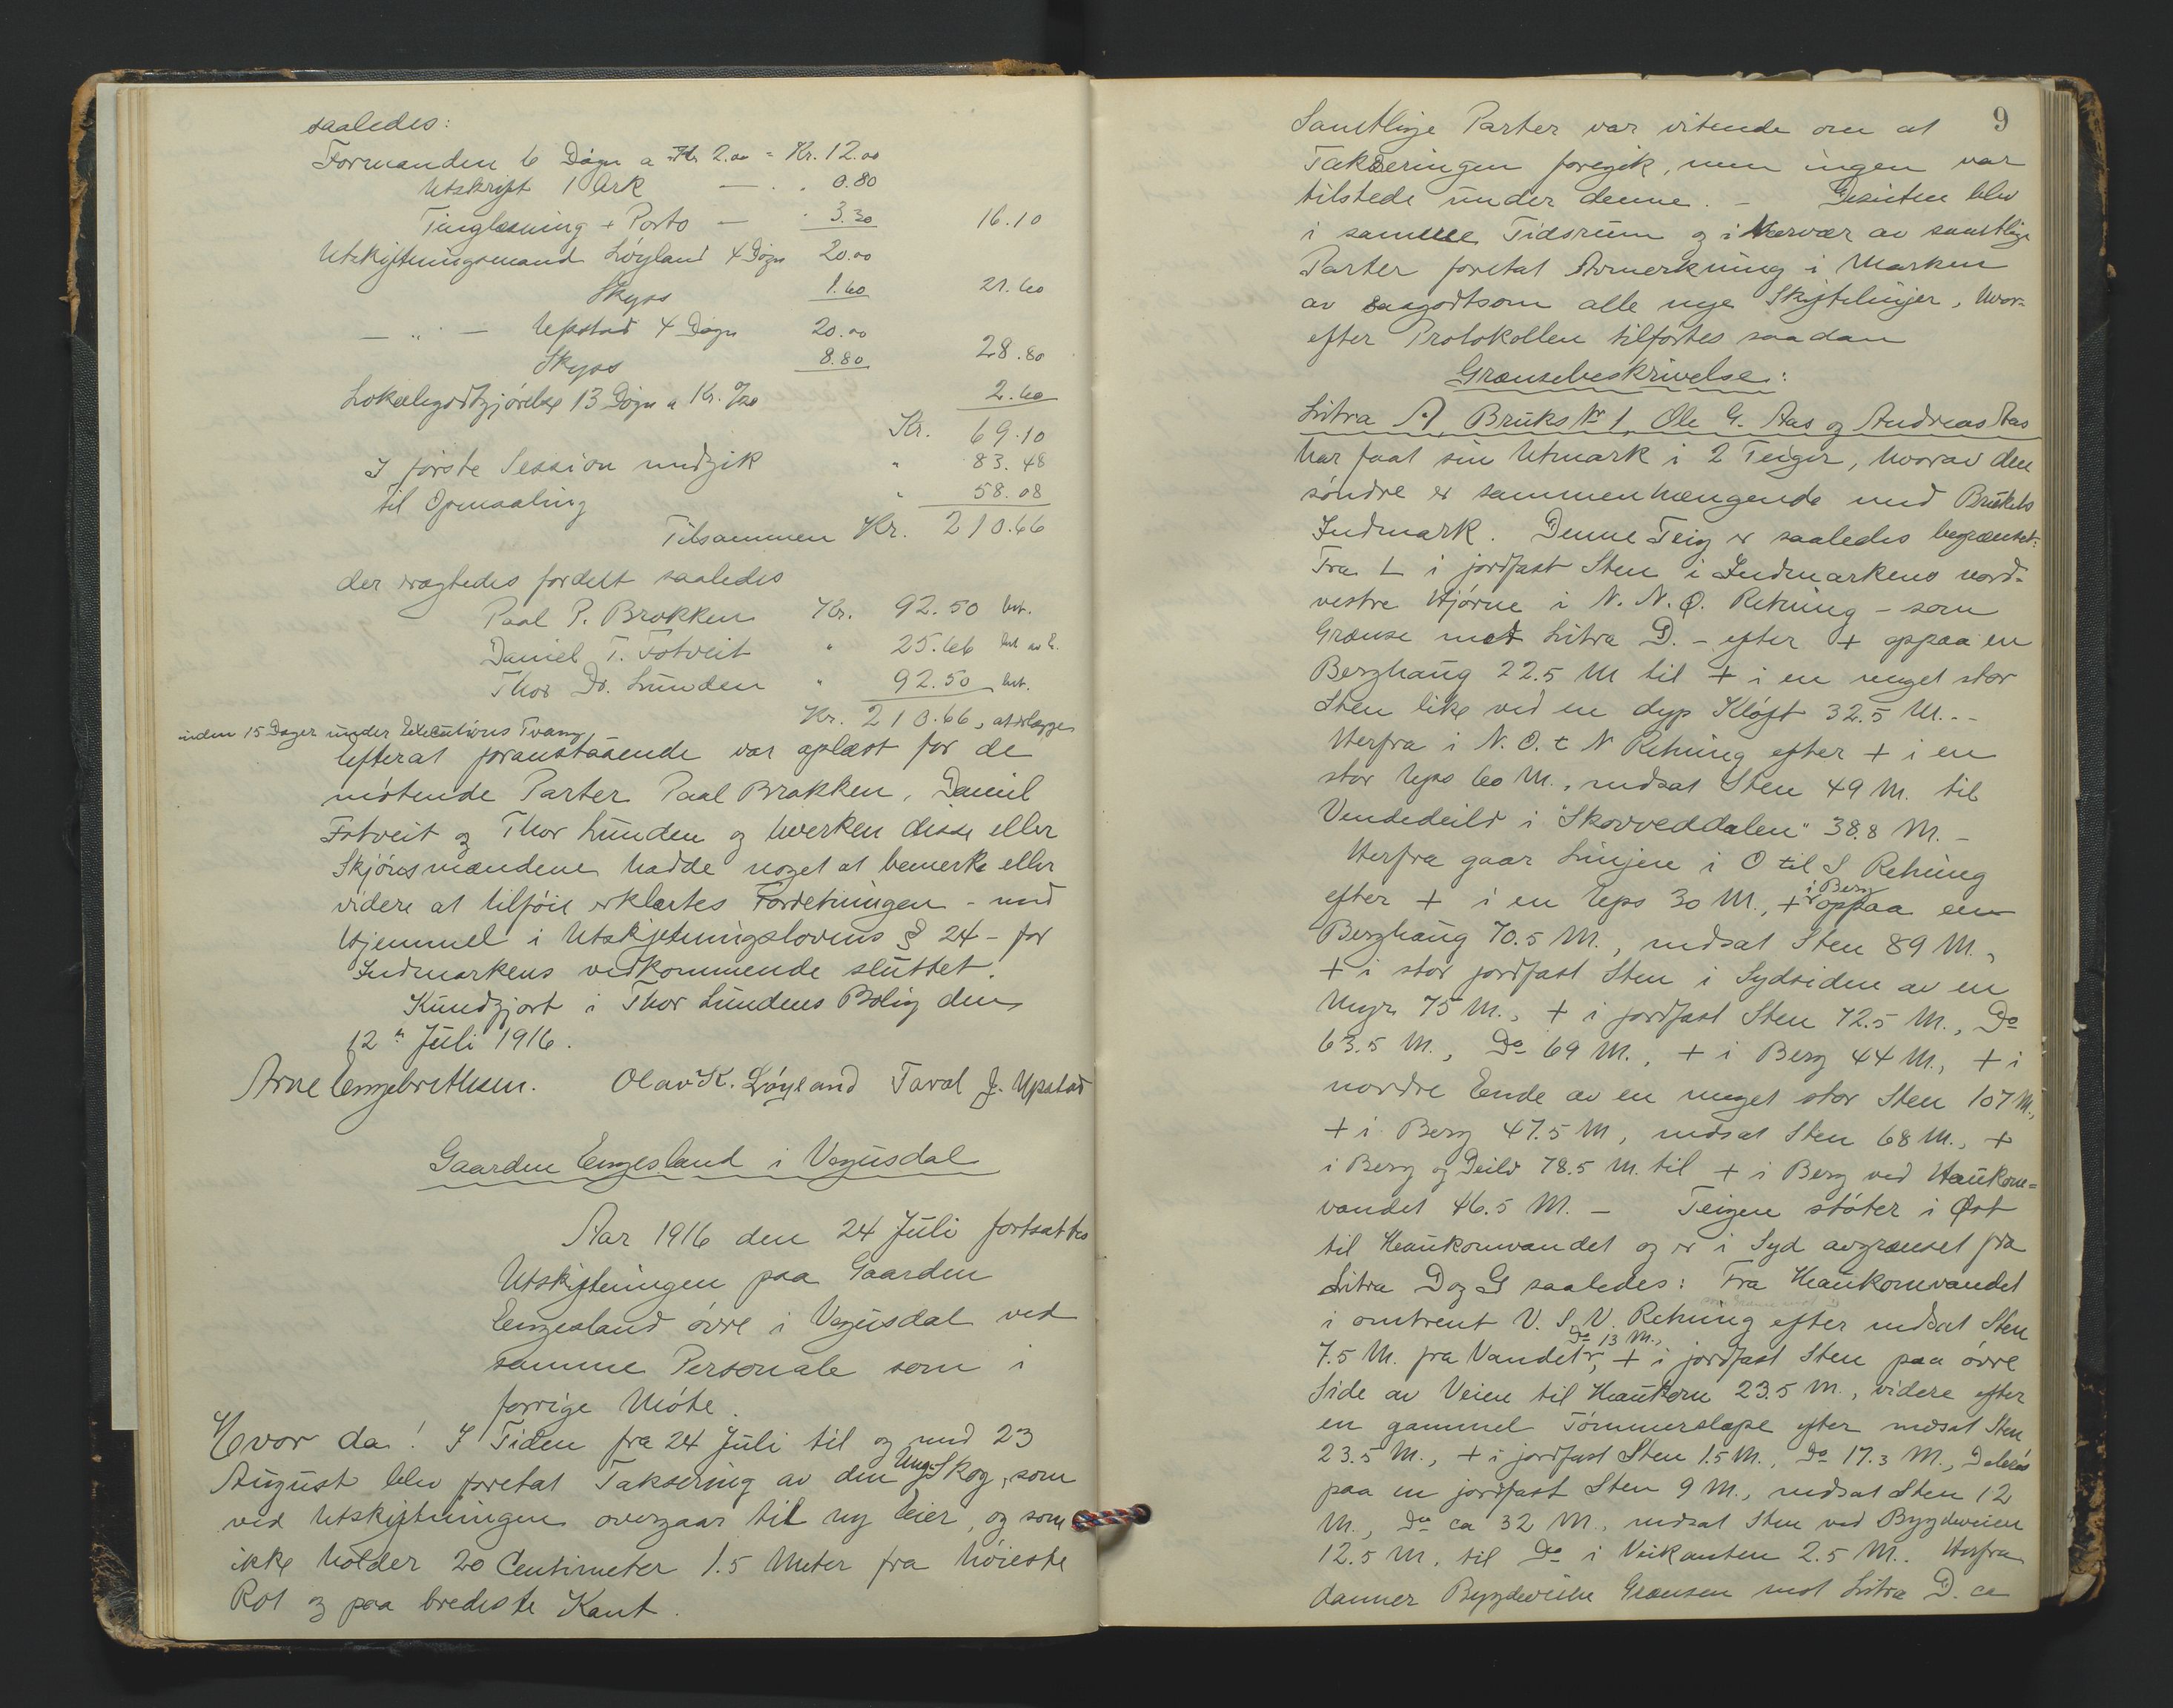 saaledes:
Formanden 6 Døgn a Kr. 2.00 = Kr. 12.00
Utskrift 1 Ark — " . 0.80
Tinglæsning + Porto — " 3.30 16.10
Utskiftningsmand Løyland 4 Døgn 20.00
Skyss 1.60 21.60
— " — Upstad 4 Døgn 20.00
Skyss 8.80 28.80
Lokalegodtgjørelse 13 Døgn a Kr. 0/20 2.60
Kr. 69.10
I første Session medgik " 83.48
til Opmaaling " 58.08
Tilsammen Kr. 210.66
der vragtedes fordelt saaledes
Paal P. Brokken Kr. 92.50 bet.
Daniel T. Fotveit " 25.66 bet av E.
Thor Dr. Lunden " 92.50 bet.
Kr. 210.66, at erlægge
inden 15 Dager under Executions Tvang
Efterat foranstaaende var oplæst for de
møtende Parter Paal Brokken, Daniel
Fotveit og Thor Lunden og hverken disse eller
Skjønsmændene hadde noget at bemerke eller
videre at tilføie erklærtes Forretningen - med
Hjemmel i Utskiftningslovens § 24 - for
Indmarkens vedkommende sluttet.
Kundgjort i Thor Lundens Bolig den
12te Juli 1916.
Arne Engebrethsen. Olav K. Løyland Taral J. Upstad
Gaarden Engesland i Vegusdal
Aar 1916 den 24 Juli fortsattes
Utskiftningen paa Gaarden
Engesland øvre i Vegusdal ved
samme Personale som i
forrige Møte.
Hvor da! I Tiden fra 24 Juli til og med 23
August blev foretat Taksering av den Ung-Skog, som
ved Utskiftningen overgaar til ny Eier, og som
ikke holder 20 Centimeter 1.5 Meter fra høieste
Rot og paa bredeste Kant.
9
Samtlige Parter var vitende om at
Takseringen foregik, men ingen var
tilstede under denne. - Desuten blev
i samme Tidsrum og i Nærvær av samtlige
Parter foretat Avmerkning i Marken
av saagodtsom alle nye Skiftelinjer, hvor-
efter Protokollen tilførtes saadan
Grænsebeskrivelse:
Litra A, Bruks No 1, Ole G. Aas og Andreas Aas
har faat sin Utmark i 2 Teiger, hvorav den
søndre er sammenhængende med Brukets
Indmark. Denne Teig er saaledes begrænset:
Fra L i jordfast Sten i Indmarkens nord-
vestre Hjørne i N. N. Ø. Retning - som
Grænse mot Litra D. - efter + oppaa en
Berghaug 22.5 M til + i en meget stor
Sten like ved en dyp Kløft 32.5 M. -
Herfra i N. O. t N Retning efter + i en
stor Ups 60 M., nedsat Sten 49 M. til
Vendedeild i "Skovveddalen" 38.8 M. -
Herfra gaar Linjen i O til S Retning
efter + i en Ups 30 M., + i Berg oppaa en
Berghaug 70.5 M., nedsat Sten 89 M.,
+ i stor jordfast Sten i Sydsiden av en
Myr 75 M., + i jordfast Sten 72.5 M., Do
63.5 M., Do 69 M., + i Berg 44 M., + i
nordre Ende av en meget stor Sten 107 M.,
+ i Berg 47.5 M, nedsat Sten 68 M., +
i Berg og Deild 78.5 M. til + i Berg ved Haukom=
vandet 46.5 M. - Teigen støter i Øst
til Haukomvandet og er i Syd avgrænset fra
Litra D og G saaledes: Fra Haukomvandet
i omtrent V. S. V. Retning efter nedsat Sten
7.5 M. fra Vandet, Do 13 M., + i jordfast Sten paa øvre
Side av Veien til Haukom 23.5 M., videre efter
en gammel Tømmerslæpe efter nedsat Sten
23.5 M., + i jordfast Sten 15 M., Do 17.3 M.,
paa en jordfast Sten 9 M., nedsat Sten 12
M., Do ca 32 M., nedsat Sten ved Bygdeveien
12.5 M, til Do i Veikanten 2.5 M. Herfra
danner Bygdeveien Grænsen mot Litra D. ca